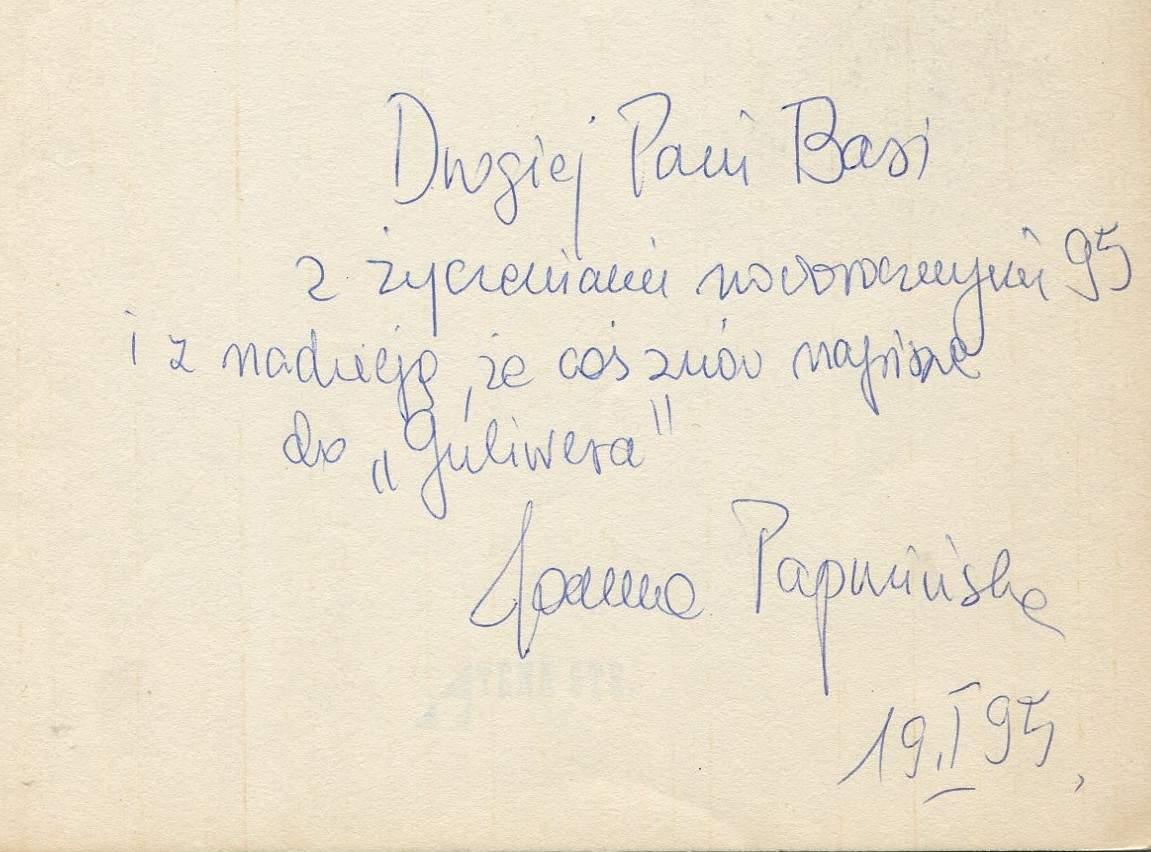 Drogiej Pani Basi
z życzeniami noworocznymi 95
i z nadzieją, że coś znów napisze
do „Guliwera"
Joanna Papuzińska
19.I 95,